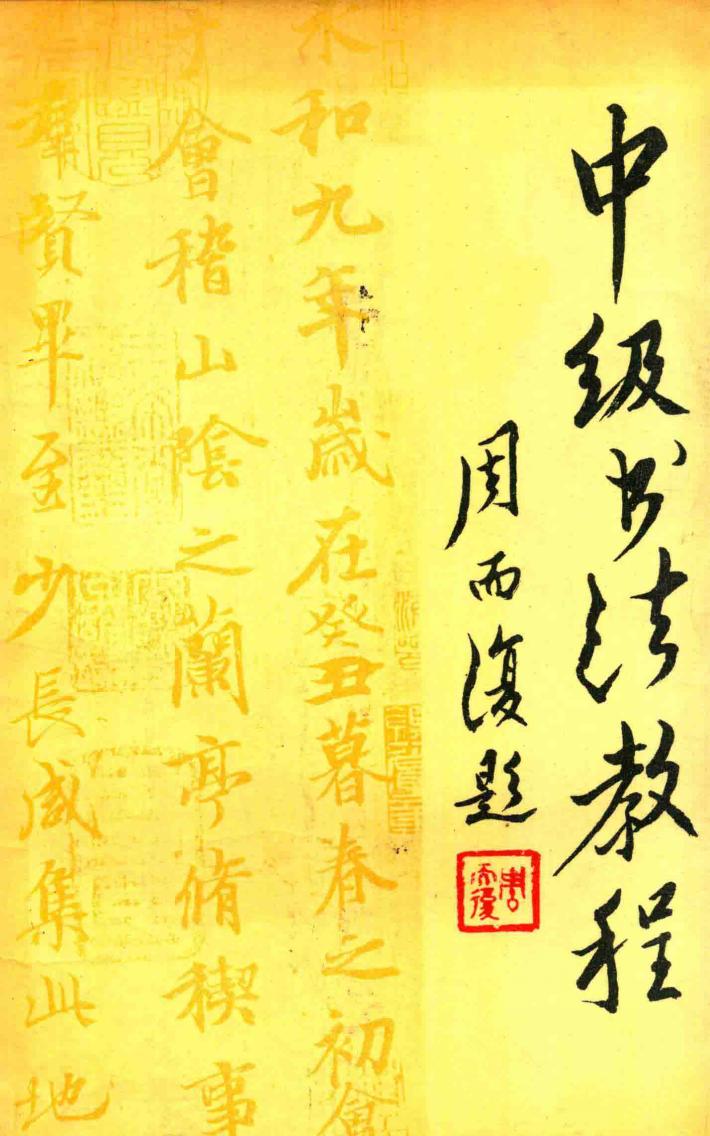 中级书法教程
周而复题
周而复
永和九年歲在癸丑暮春之初會
于會稽山陰之蘭亭脩稧事
羣賢畢至少長咸集此地